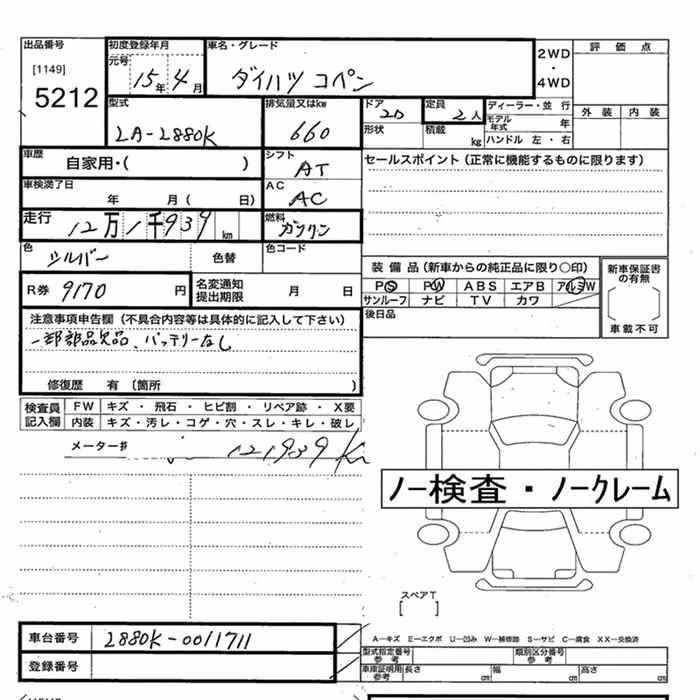 出品番号 初度登録年月 車名・グレード 2WD・4WD 評価点
[1149] 元号 15年 4月 ダイハツ コペン
5212 外装 内装
型式 排気量又はkw ドア 2D 定員 2人 ディーラー・並行
LA-L880K 660 形状 積載 kg モデル年式 年
ハンドル 左・右
車歴 自家用・( ) シフト AT セールスポイント(正常に機能するものに限ります)
車検満了日 年 月( 日) AC AC
走行 12万1千939km 燃料 ガソリン
色 シルバー 色替 色コード
装備品(新車からの純正品に限り○印) 新車保証書の有無
R券 9170円 名変通知提出期限 月 日 PS PW ABS エアB アルミW
サンルーフ ナビ TV カワ
後日品 車載不可
注意事項申告欄(不具合内容等は具体的に記入して下さい)
一部部品欠品、バッテリーなし
修復歴 有〔箇所 〕
検査員記入欄 FW キズ・飛石・ヒビ割・リペア跡・X要
内装 キズ・汚レ・コゲ・穴・スレ・キレ・破レ
メーター♯ 121939 Km
ノー検査・ノークレーム
スペアT
[ ]
車台番号 L880K-0011711 A−キズ E−エクボ U−凹み W−補修跡 S−サビ C−腐食 XX−交換済
型式指定番号 参考 類別区分番号 参考
登録番号 車庫証明用 参考 長さ cm 幅 cm 高さ cm